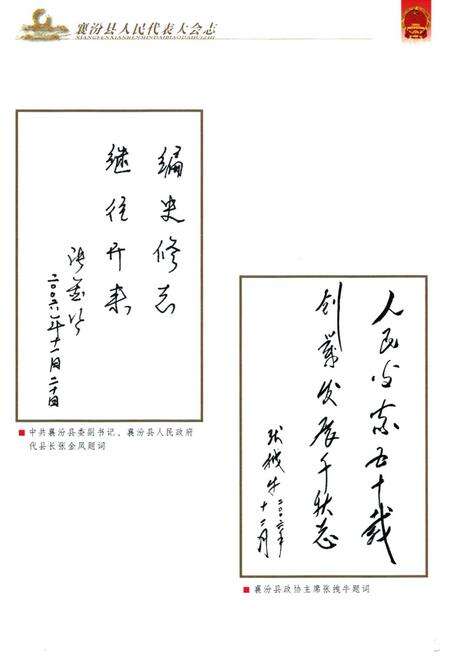 襄汾县人民代表大会志
XIANGFENXIANRENMINDAIBIAODAHUIZHI
编史修志
继往开来
张金凤
二〇〇六年十一月二十四日
■ 中共襄汾县委副书记、襄汾县人民政府
代县长张金凤题词
人民当家五十载
创业发展千秋志
张拽牛
二〇〇六年
十二月
■ 襄汾县政协主席张拽牛题词